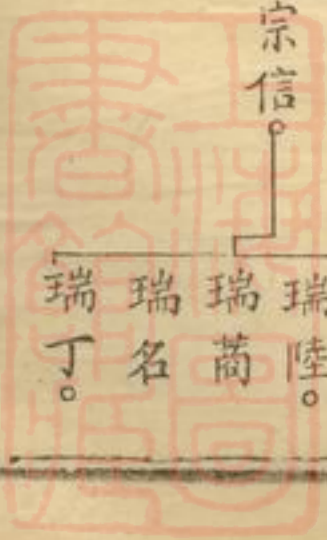 宗信
瑞陸
瑞蔄
瑞名
瑞丁